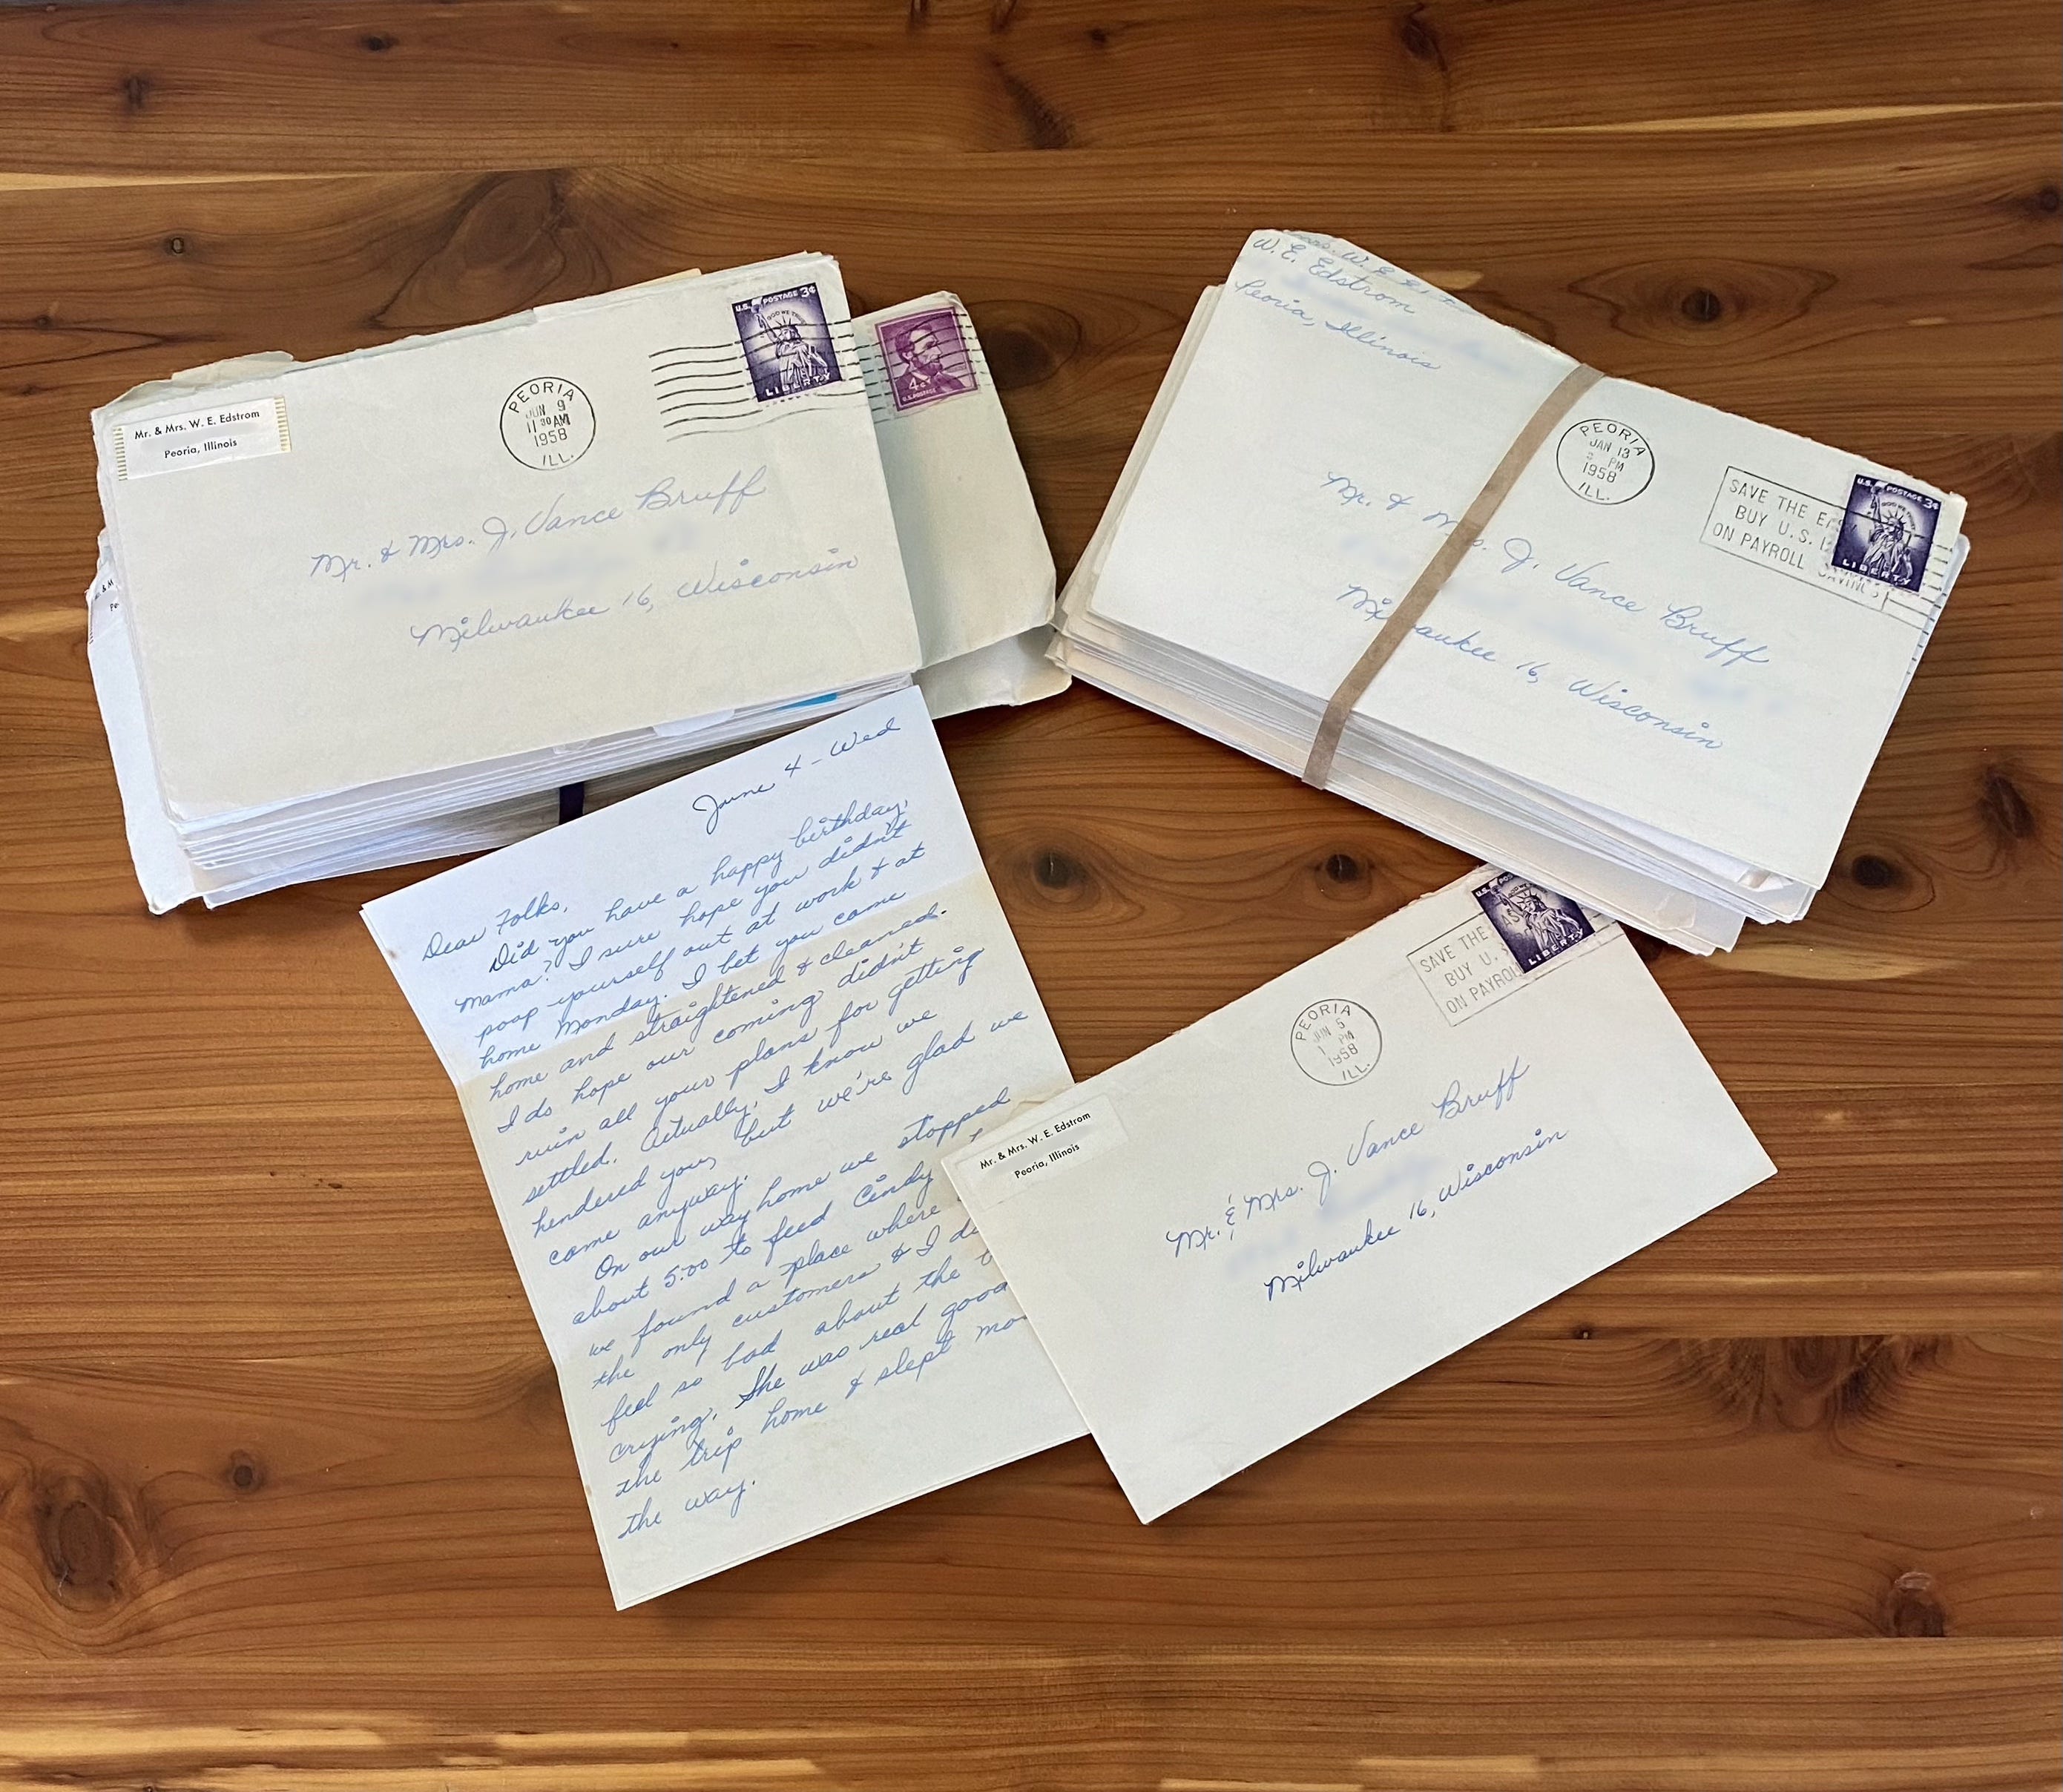 Mr. & Mrs. W. E. Edstrom
Peoria, Illinois
PEORIA
JUN 9
11 30 AM
1958
ILL.
U.S. POSTAGE 3¢
IN GOD WE TRUST
LIBERTY
4¢
U.S. POSTAGE
Mr. & Mrs. J. Vance Bruff
Milwaukee 16, Wisconsin
W. E. Edstrom
Peoria, Illinois
PEORIA
JAN 13
PM
1958
ILL.
SAVE THE EA
BUY U.S.
ON PAYROLL SAVINGS
U.S. POSTAGE 3¢
LIBERTY
Mr. & Mrs. J. Vance Bruff
Milwaukee 16, Wisconsin
June 4 - Wed
Dear Folks,
Did you have a happy birthday,
Mama? I sure hope you didn't
poop yourself out at work & at
home Monday. I bet you came
home and straightened & cleaned.
I do hope our coming didn't
ruin all your plans for getting
settled. Actually, I know we
hendered you, but we're glad we
came anyway.
On our way home we stopped
about 5:00 to feed Cindy
we found a place where
the only customers & I di
feel so bad about the
crying. She was real good
the trip home & slept mo
the way.
Mr. & Mrs. W. E. Edstrom
Peoria, Illinois
PEORIA
JUN 5
1 PM
1958
ILL.
SAVE THE EAS
BUY U.S.
ON PAYROL
U.S. PO
LIBERTY
Mr. & Mrs. J. Vance Bruff
Milwaukee 16, Wisconsin